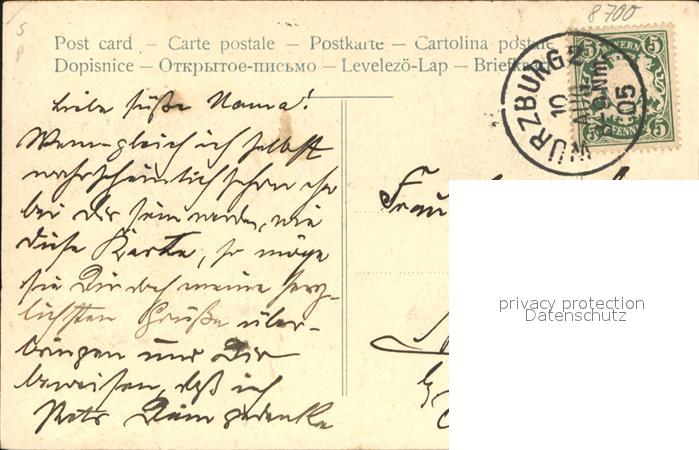 8700
S
P
Post card – Carte postale – Postkarte – Cartolina postale
Dopisnice – Открытое-письмо – Levelező-Lap – Briefka
BAYERN
5 5
5 5
PFENNIG
WÜRZBURG 2
10 AUG
NM
05
Liebe süße Mama!
Wenngleich ich selbst
wahrscheinlich schon eher
bei Dir sein werde, wie
diese Karte, so möge
sie Dir doch meine herz-
lichsten Grüße über-
bringen und Dir
beweisen, daß ich
stets Dein gedenke
Frau
privacy protection
Datenschutz